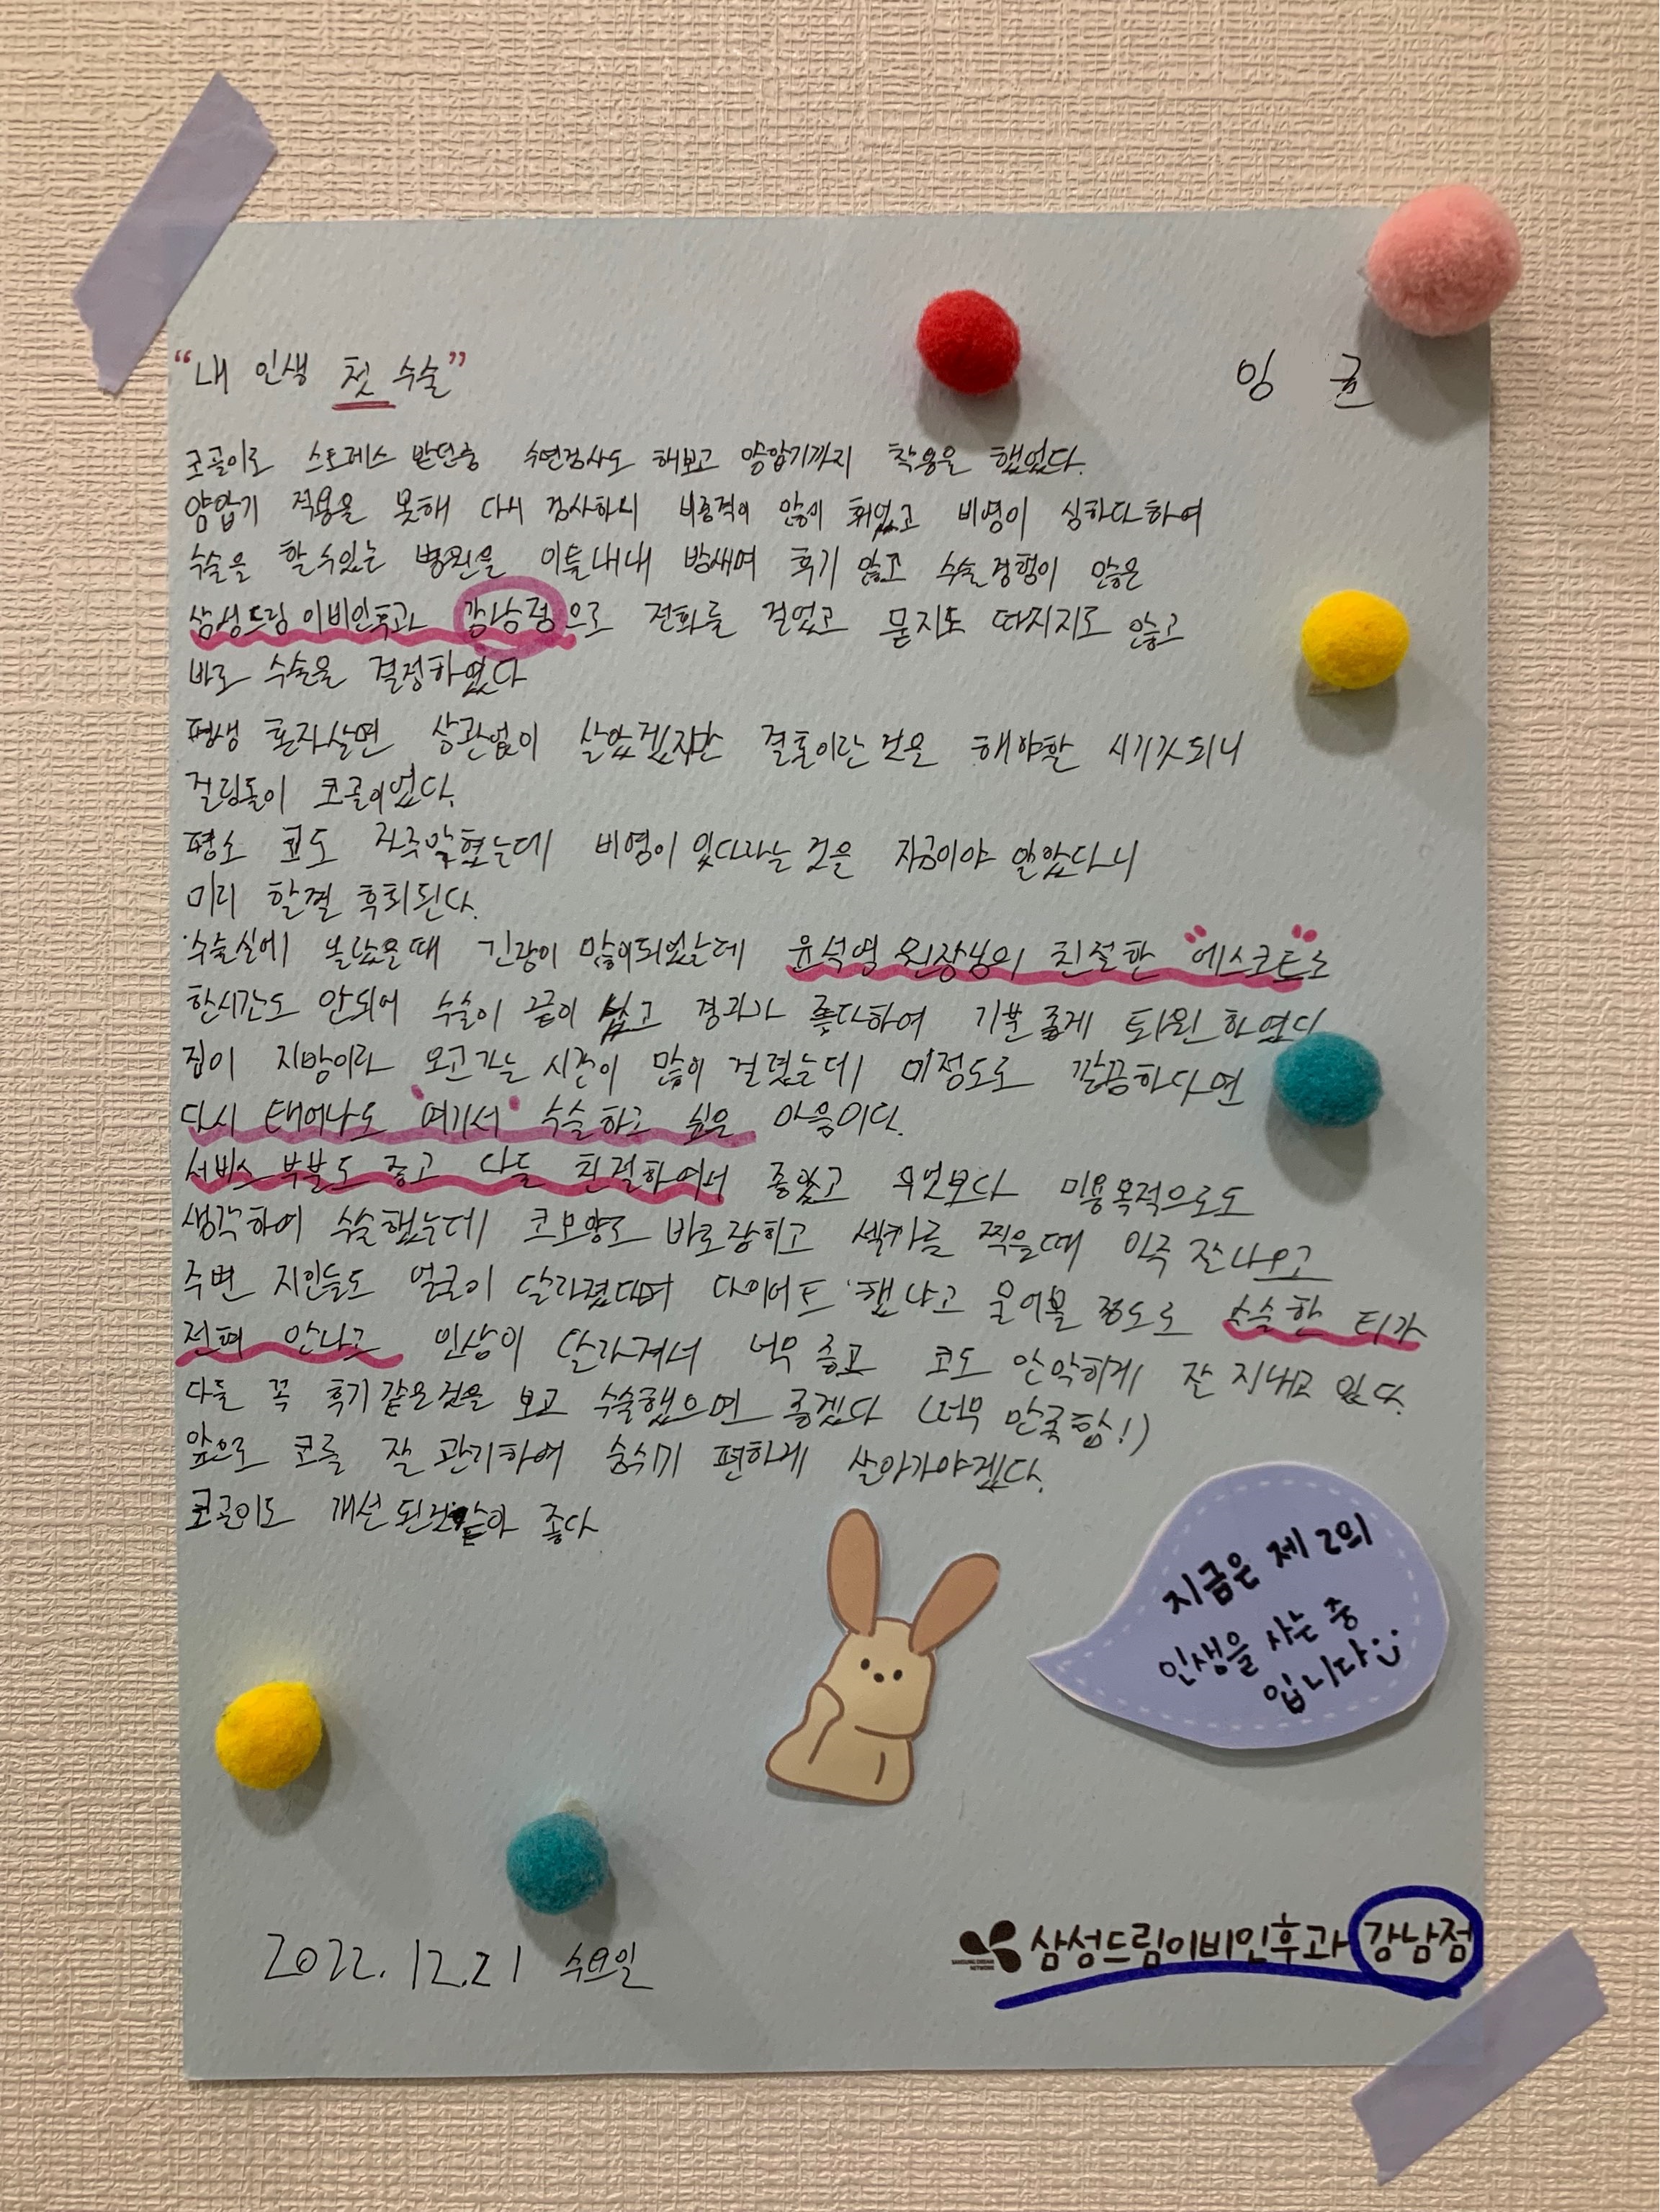 "내 인생 첫 수술"
코골이로 스트레스 받던중 수면검사도 해보고 양압기까지 착용을 했었다.
양압기 적용을 못해 다시 검사하니 비중격이 많이 휘었고 비염이 심하다하여
수술을 할수있는 병원을 이틀내내 밤새며 후기 읽고 수술경험이 많은
삼성드림이비인후과 강남점으로 전화를 걸었고 묻지도 따지지도 않고
바로 수술을 결정하였다
평생 혼자살면 상관없이 살았겠지만 결혼이란것을 해야할 시기가되니
걸림돌이 코골이었다.
평소 코도 자주막혔는데 비염이 있다라는 것을 지금이야 알았다니
미리 할껄 후회된다.
수술실에 누웠을때 긴장이 많이되었는데 윤석영 원장님의 친절한 "에스코트"로
한시간도 안되어 수술이 끝이 났고 경과가 좋다하여 기분좋게 퇴원하였다
집이 지방이라 오고가는 시간이 많이 걸렸는데 이정도로 깔끔하다면
다시 태어나도 '여기서' 수술하고 싶은 마음이다.
서비스 부분도 좋고 다들 친절하여서 좋았고 무엇보다 미용목적으로도
생각하여 수술했는데 코모양도 바로잡히고 셀카를 찍을때 아주 잘나오고
주변 지인들도 얼굴이 달라졌다며 다이어트 했냐고 물어볼 정도로 수술한 티가
전혀 안나고 인상이 달라져서 너무 좋고 코도 안막히게 잘 지내고 있다.
다들 꼭 후기같은것을 보고 수술했으면 좋겠다 (너무 만족함!)
앞으로 코를 잘 관리하여 숨쉬기 편하게 살아가야겠다.
코골이도 개선된것같아 좋다
지금은 제2의
인생을 사는 중
입니다
2022.12.21 수요일
삼성드림이비인후과 강남점